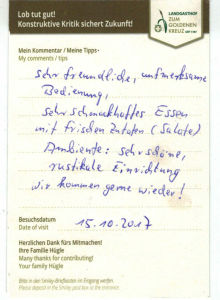 Lob tut gut!
Konstruktive Kritik sichert Zukunft!
LANDGASTHOF
ZUM
GOLDENEN
KREUZ
Mein Kommentar / Meine Tipps
My comments / tips
Sehr freundliche, aufmerksame
Bedienung,
sehr schmackhaftes Essen
mit frischen Zutaten (Salate)
Ambiente: sehr schöne,
rustikale Einrichtung
Wir kommen gerne wieder!
Besuchsdatum
Date of visit
15.10.2017
Herzlichen Dank fürs Mitmachen!
Ihre Familie Hügle
Many thanks for contributing!
Your family Hügle
Bitte in den Smiley-Briefkasten im Eingang werfen.
Please deposit in the Smiley post box at the entrance.